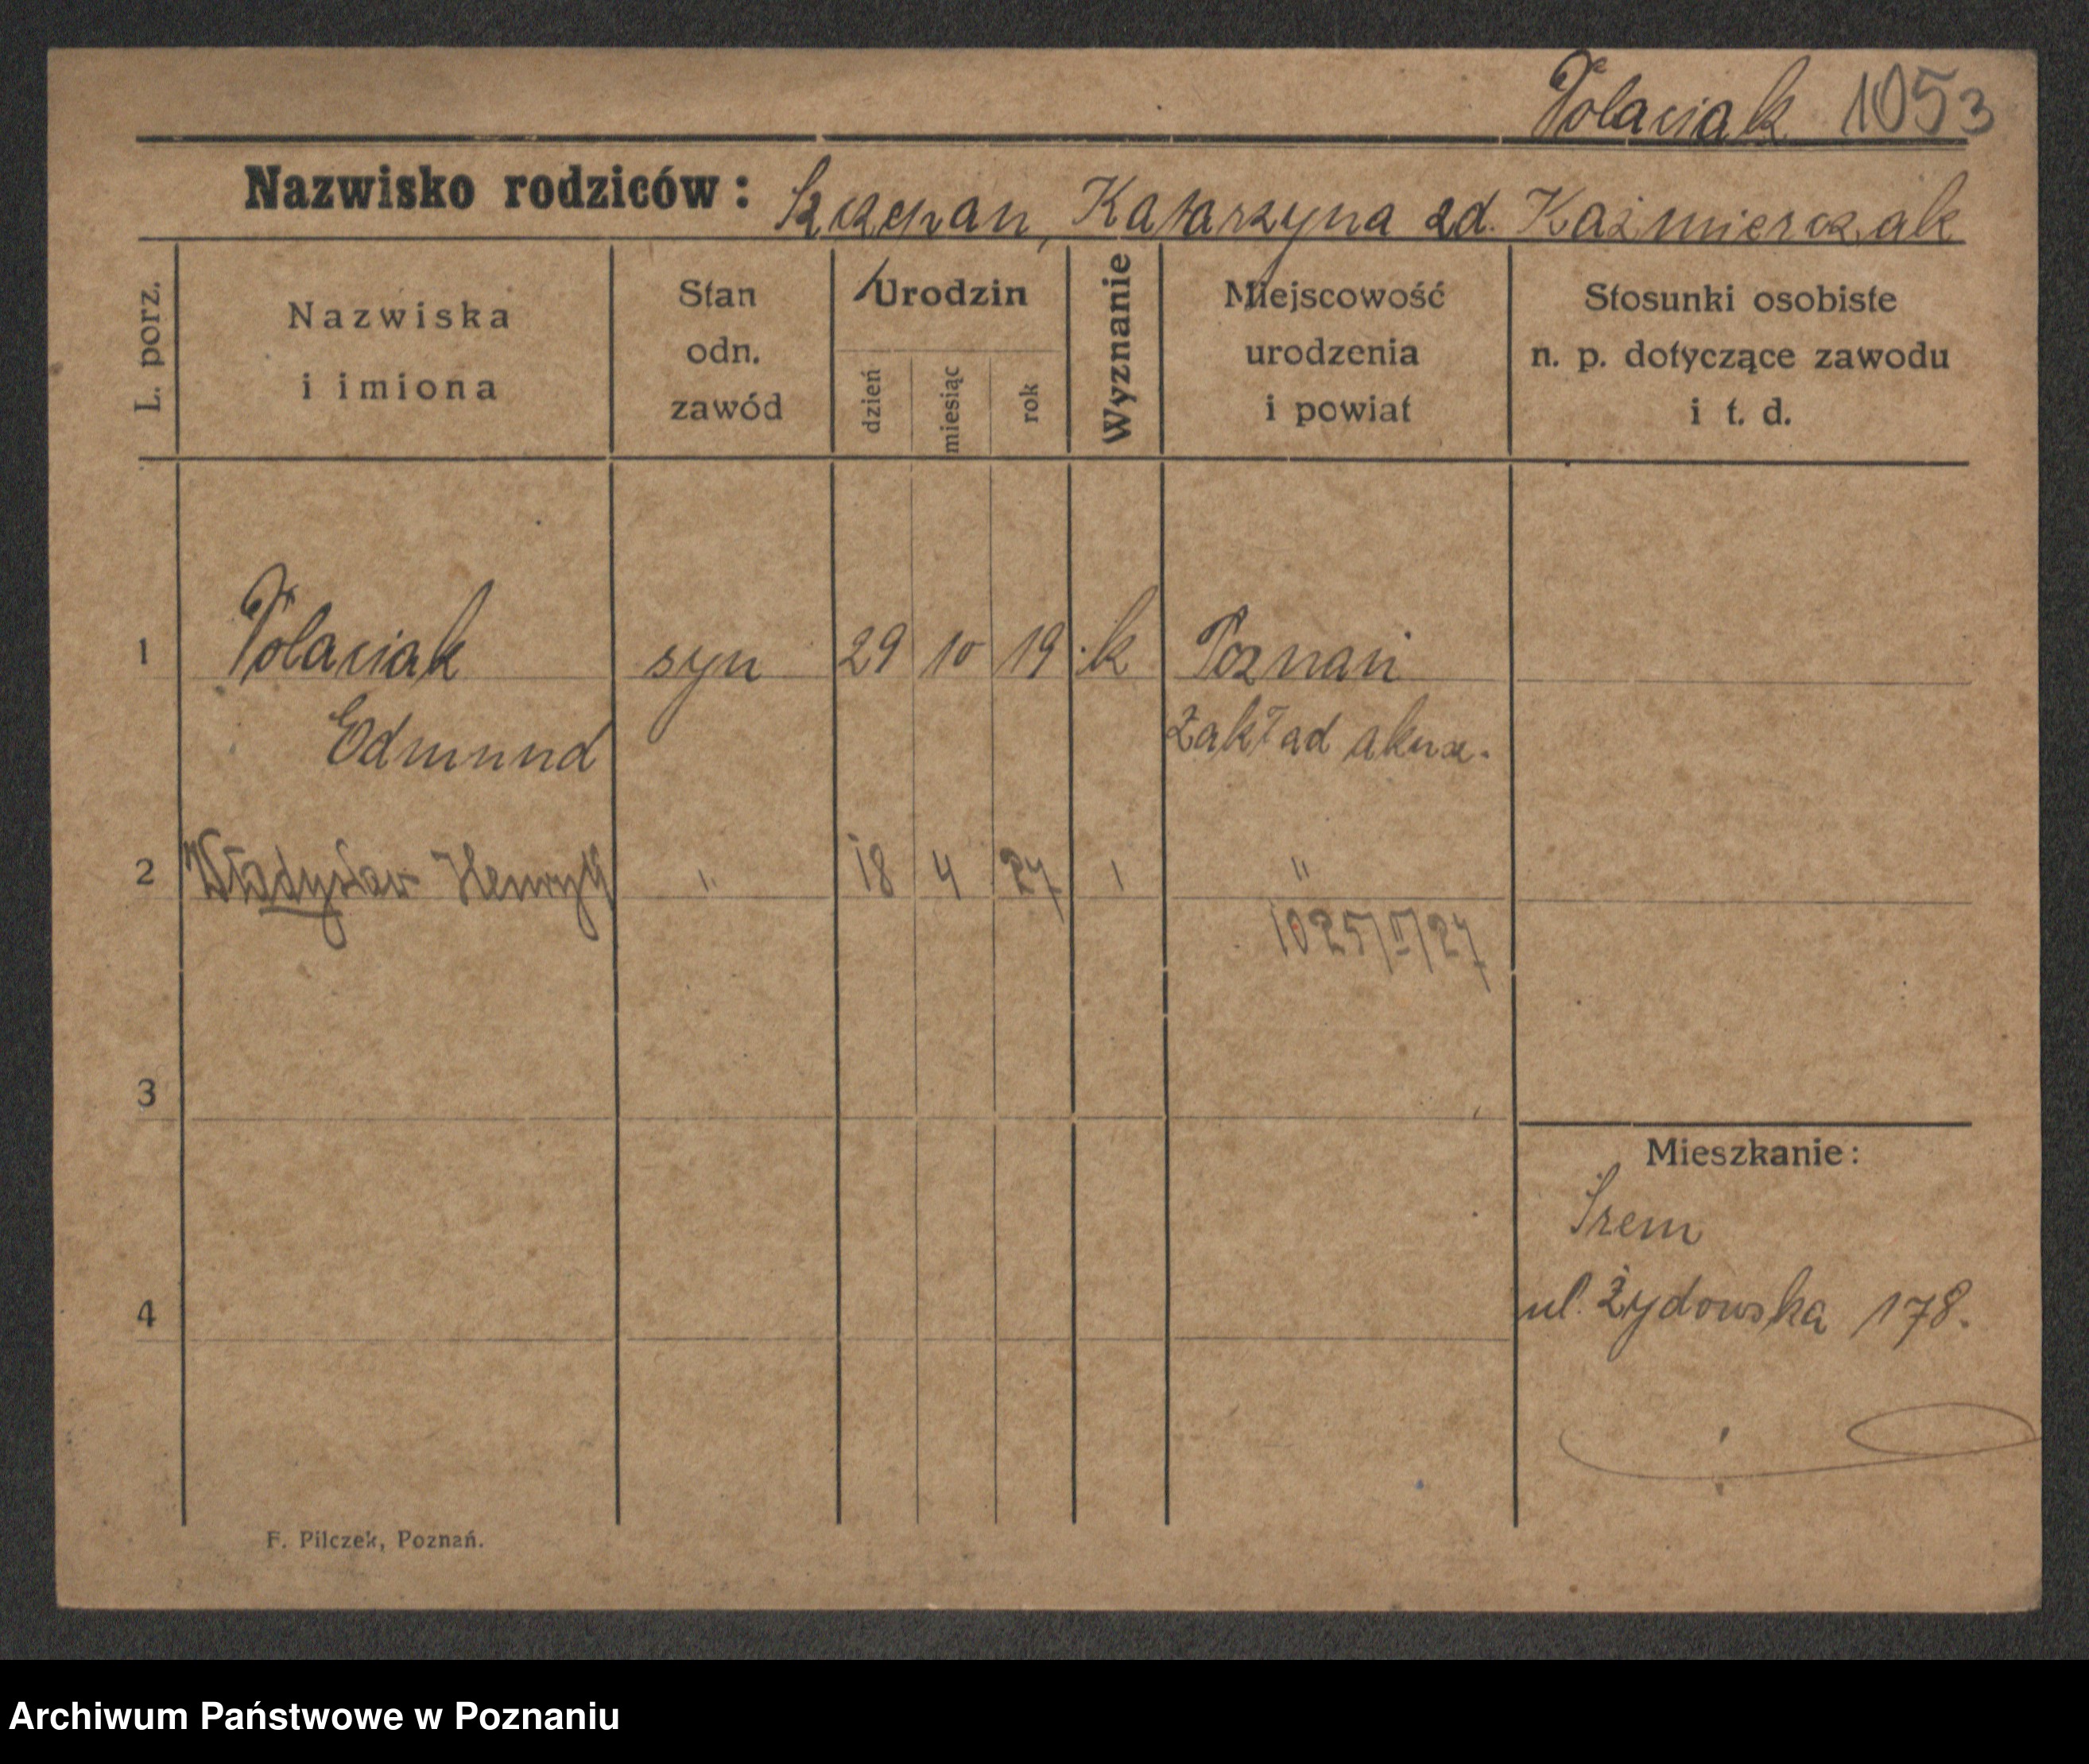 Polaciak 1053
Nazwisko rodziców: Szczepan, Katarzyna zd. Kaźmierczak
L. porz.
Nazwiska
i imiona
Stan
odn.
zawód
Urodzin
dzień
miesiąc
rok
Wyznanie
Miejscowość
urodzenia
i powiat
Stosunki osobiste
n. p. dotyczące zawodu
i t. d.
1 Polaciak syn 29 10 19 k Poznań
Edmund Zakład akusz.
2 Władysław Henryk " 18 4 27 " "
1025/II/27
3
Mieszkanie:
Śrem
4 ul. Żydowska 178.
F. Pilczek, Poznań.
Archiwum Państwowe w Poznaniu